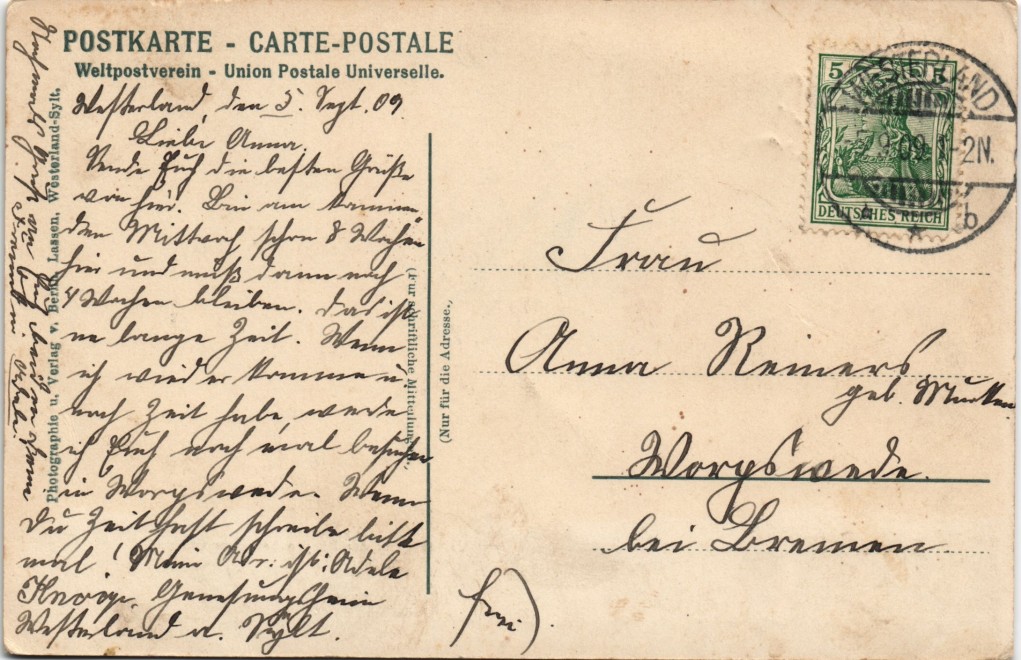 POSTKARTE - CARTE-POSTALE
Weltpostverein - Union Postale Universelle.
Westerland, den 5. Sept. 09
Liebe Anna.
Sende Euch die besten Grüße
von hier. Bin am kommen-
den Mittwoch schon 8 Wochen
hier und muß dann noch
4 Wochen bleiben. Das ist
ne lange Zeit. Wenn
ich wieder komme u.
noch Zeit habe, werde
ich Euch noch mal besuchen
in Worpswede. Wenn
Du Zeit hast schreibe bitte
mal! Meine Adr. ist: Adele
Genesungsheim
Westerland a. Sylt.
Freundin Adele
Photographie u. Verlag v. Bernh. Lassen, Westerland-Sylt.
(Für schriftliche Mitteilung.)
(Nur für die Adresse.)
Frau
Anna Reimers
geb.
Worpswede.
bei Bremen.
frei)
5 5
DEUTSCHES REICH
WESTERLAND
9.09. 1-2N.
* b